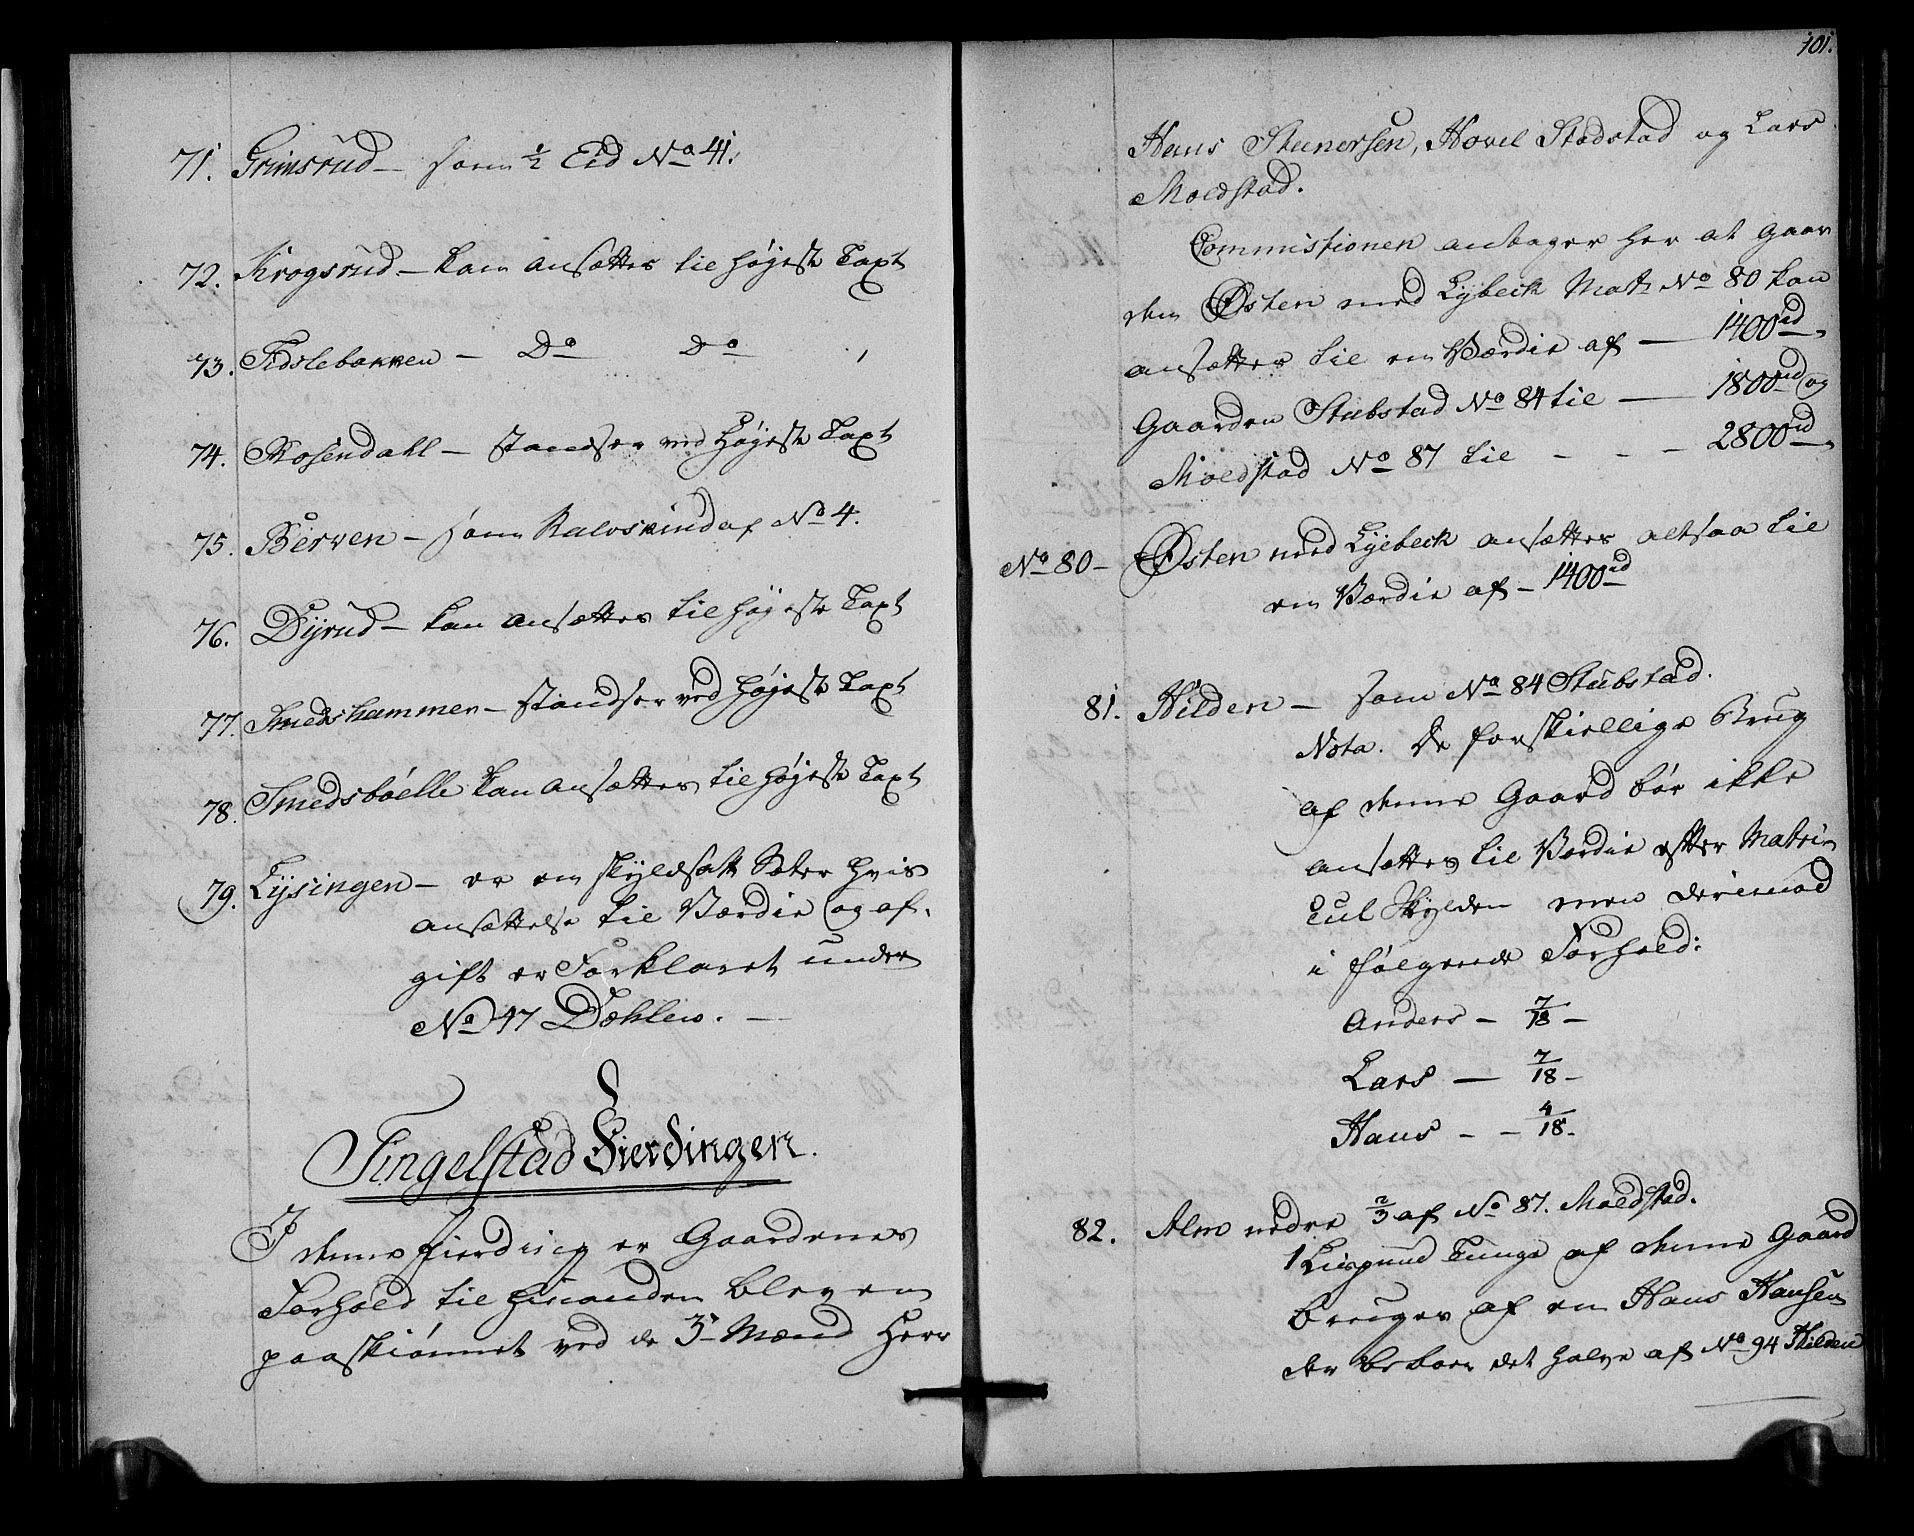 71. Grimsrud — som ½ Eid No 41.
72. Krogsrud — kan ansættes til høyeste Taxt
73. Tidslebakken — Do Do
74. Rosendahl — standser ved høyeste Taxt
75. Berven — som Kalvskind af No 4.
76. Dyrud — kan ansættes til høyeste Taxt
77. Smedshammer — standser ved høyeste Taxt
78. Smedsbøelle kan ansættes til høyeste Taxt
79. Lysingen — er en skyldsatt Sæter hvis
ansættelse til Værdie og af-
gift er Forklaret under
No 47 Dæhlen. —
Tingelstad Fierdingen.
I denne fierding er Gaardenes
Forhold til hinanden bleven
paaskiønnet ved de 3de Mænd Herr
101.
Hans Stenersen, Hovel Stadstad og Lars
Moldstad.
Commistionen antager her at Gaar
den Østen med Lybeck Mat. No 80 kan
ansættes til en Værdie af — 1400rd,
Gaarden Stubstad No 84 til — 1800rd og
Moldstad No 87 til - - - 2800rd,
No 80 — Østen med Lybeck ansættes altsaa til
en Værdie af — 1400rd
81. Hilden — som No 84 Stubstad.
Nota. De forskiellige Brug
af denne Gaard bør ikke
ansættes til Værdie efter Matri-
cul Skylden men derimod
i følgende Forhold:
Anders — 7/18 —
Lars — 7/18 —
Hans - - 4/18 -
82. Alm nedre 2/3 af No 87. Moldstad.
1 Lispund Tunge af denne Gaard
bruges af en Hans Hansen
der beboer det halve af No 94 Hilden